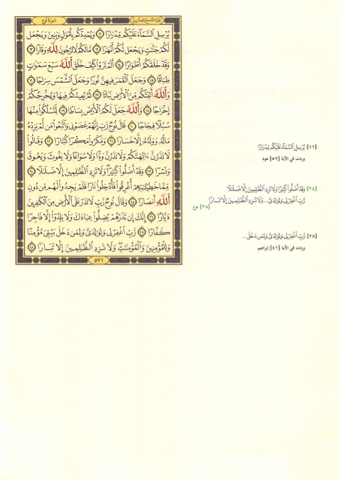 سورة نوح
يُرْسِلِ السَّمَاءَ عَلَيْكُم مِّدْرَارًا ﴿١١﴾ وَيُمْدِدْكُم بِأَمْوَالٍ وَبَنِينَ وَيَجْعَل
لَّكُمْ جَنَّاتٍ وَيَجْعَل لَّكُمْ أَنْهَارًا ﴿١٢﴾ مَّا لَكُمْ لَا تَرْجُونَ لِلَّهِ وَقَارًا ﴿١٣﴾
وَقَدْ خَلَقَكُمْ أَطْوَارًا ﴿١٤﴾ أَلَمْ تَرَوْا كَيْفَ خَلَقَ اللَّهُ سَبْعَ سَمَاوَاتٍ
طِبَاقًا ﴿١٥﴾ وَجَعَلَ الْقَمَرَ فِيهِنَّ نُورًا وَجَعَلَ الشَّمْسَ سِرَاجًا ﴿١٦﴾
وَاللَّهُ أَنبَتَكُم مِّنَ الْأَرْضِ نَبَاتًا ﴿١٧﴾ ثُمَّ يُعِيدُكُمْ فِيهَا وَيُخْرِجُكُمْ
إِخْرَاجًا ﴿١٨﴾ وَاللَّهُ جَعَلَ لَكُمُ الْأَرْضَ بِسَاطًا ﴿١٩﴾ لِّتَسْلُكُوا مِنْهَا
سُبُلًا فِجَاجًا ﴿٢٠﴾ قَالَ نُوحٌ رَّبِّ إِنَّهُمْ عَصَوْنِي وَاتَّبَعُوا مَن لَّمْ يَزِدْهُ
مَالُهُ وَوَلَدُهُ إِلَّا خَسَارًا ﴿٢١﴾ وَمَكَرُوا مَكْرًا كُبَّارًا ﴿٢٢﴾ وَقَالُوا
لَا تَذَرُنَّ آلِهَتَكُمْ وَلَا تَذَرُنَّ وَدًّا وَلَا سُوَاعًا وَلَا يَغُوثَ وَيَعُوقَ
وَنَسْرًا ﴿٢٣﴾ وَقَدْ أَضَلُّوا كَثِيرًا وَلَا تَزِدِ الظَّالِمِينَ إِلَّا ضَلَالًا ﴿٢٤﴾
مِّمَّا خَطِيئَاتِهِمْ أُغْرِقُوا فَأُدْخِلُوا نَارًا فَلَمْ يَجِدُوا لَهُم مِّن دُونِ
اللَّهِ أَنصَارًا ﴿٢٥﴾ وَقَالَ نُوحٌ رَّبِّ لَا تَذَرْ عَلَى الْأَرْضِ مِنَ الْكَافِرِينَ
دَيَّارًا ﴿٢٦﴾ إِنَّكَ إِن تَذَرْهُمْ يُضِلُّوا عِبَادَكَ وَلَا يَلِدُوا إِلَّا فَاجِرًا
كَفَّارًا ﴿٢٧﴾ رَّبِّ اغْفِرْ لِي وَلِوَالِدَيَّ وَلِمَن دَخَلَ بَيْتِيَ مُؤْمِنًا
وَلِلْمُؤْمِنِينَ وَالْمُؤْمِنَاتِ وَلَا تَزِدِ الظَّالِمِينَ إِلَّا تَبَارًا ﴿٢٨﴾
٥٧١
[١١] يُرْسِلِ السَّمَاءَ عَلَيْكُم مِّدْرَارًا
وردت في الآية [٥٢] هود
[٢٤] وَقَدْ أَضَلُّوا كَثِيرًا وَلَا تَزِدِ الظَّالِمِينَ إِلَّا ضَلَالًا
رَّبِّ اغْفِرْ لِي وَلِوَالِدَيَّ... وَلَا تَزِدِ الظَّالِمِينَ إِلَّا تَبَارًا
[٢٨] نوح
[٢٨] رَّبِّ اغْفِرْ لِي وَلِوَالِدَيَّ وَلِمَن دَخَلَ...
وردت في الآية [٤١] إبراهيم